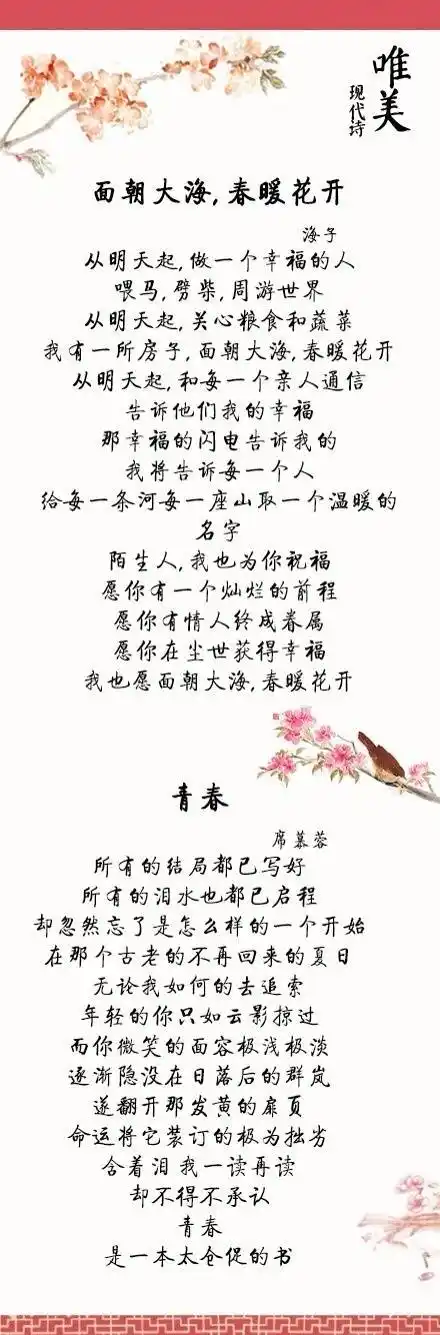 唯美
现代诗
面朝大海,春暖花开
海子
从明天起,做一个幸福的人
喂马,劈柴,周游世界
从明天起,关心粮食和蔬菜
我有一所房子,面朝大海,春暖花开
从明天起,和每一个亲人通信
告诉他们我的幸福
那幸福的闪电告诉我的
我将告诉每一个人
给每一条河每一座山取一个温暖的
名字
陌生人,我也为你祝福
愿你有一个灿烂的前程
愿你有情人终成眷属
愿你在尘世获得幸福
我也愿面朝大海,春暖花开
青春
席慕蓉
所有的结局都已写好
所有的泪水也都已启程
却忽然忘了是怎么样的一个开始
在那个古老的不再回来的夏日
无论我如何的去追索
年轻的你只如云影掠过
而你微笑的面容极浅极淡
逐渐隐没在日落后的群岚
遂翻开那发黄的扉页
命运将它装订的极为拙劣
含着泪 我一读再读
却不得不承认
青春
是一本太仓促的书